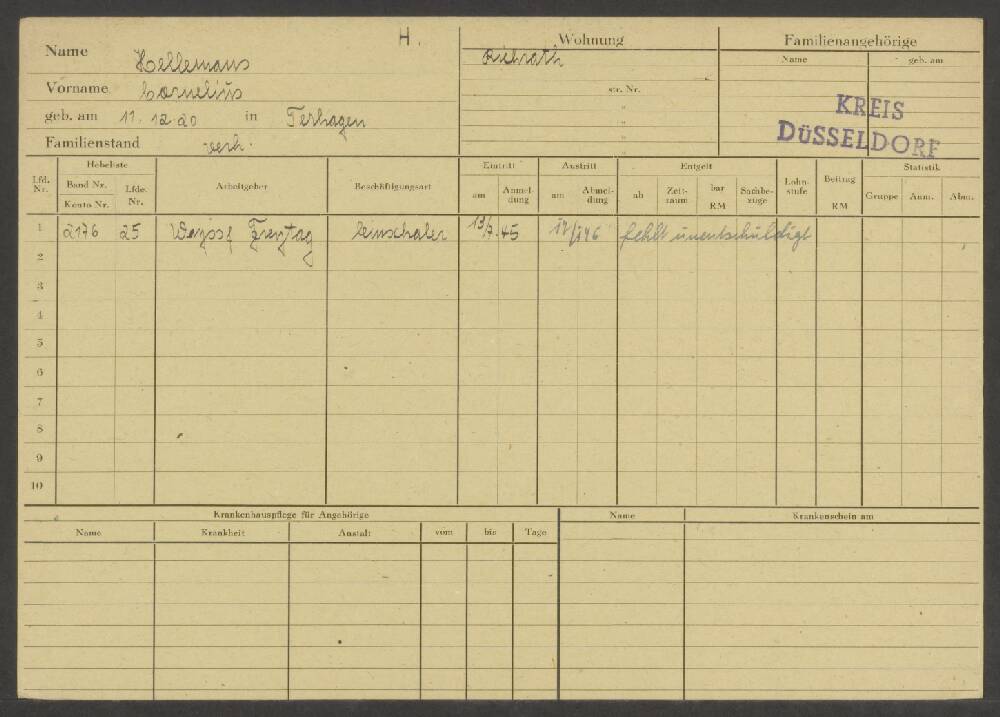 H.
Name Hellemans
Vorname Cornelius
geb. am 11. 12. 20 in Terhagen
Familienstand verh.
Wohnung
str. Nr.
"
"
Familienangehörige
Name geb. am
KREIS
DÜSSELDORF
Lfd. Nr.
Hebeliste
Band Nr.
Konto Nr.
Lfde. Nr.
Arbeitgeber
Beschäftigungsart
Eintritt
am Anmel-dung
Austritt
am Abmel-dung
Entgelt
ab Zeit-raum bar RM Sachbe-züge
Lohn-stufe
Beitrag RM
Statistik
Gruppe Anm. Abm.
1 2176 25 Wayss & Freytag Einschaler 45 fehlt unentschuldigt
2
3
4
5
6
7
8
9
10
Krankenhauspflege für Angehörige
Name Krankheit Anstalt vom bis Tage
Name Krankenschein am